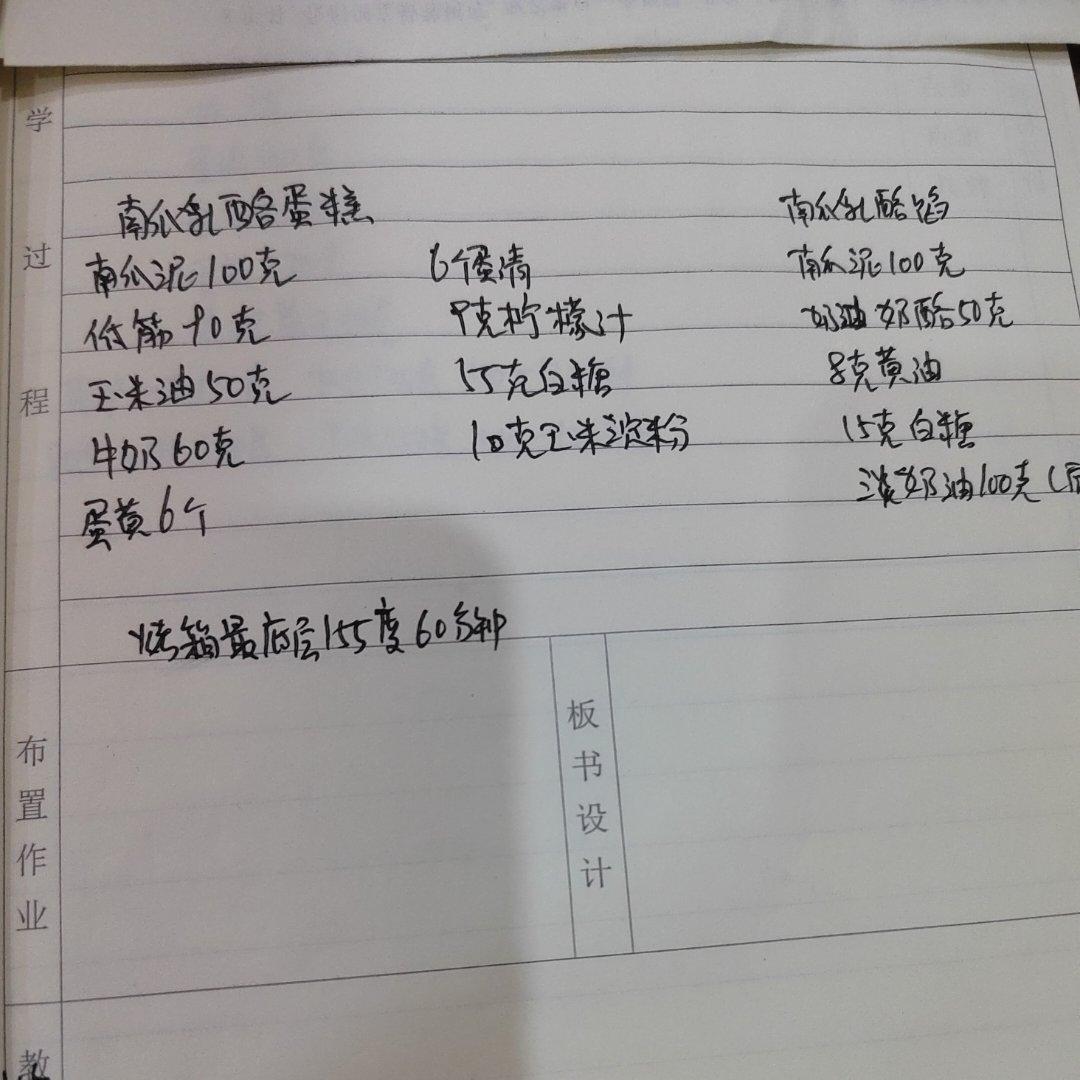 学
过
程
南瓜乳酪蛋糕
南瓜泥100克
低筋90克
玉米油50克
牛奶60克
蛋黄6个
6个蛋清
9克柠檬汁
55克白糖
10克玉米淀粉
南瓜乳酪馅
南瓜泥100克
奶油奶酪50克
8克黄油
15克白糖
淡奶油100克(
烤箱最底层155度60分钟
布置作业
板书设计
教